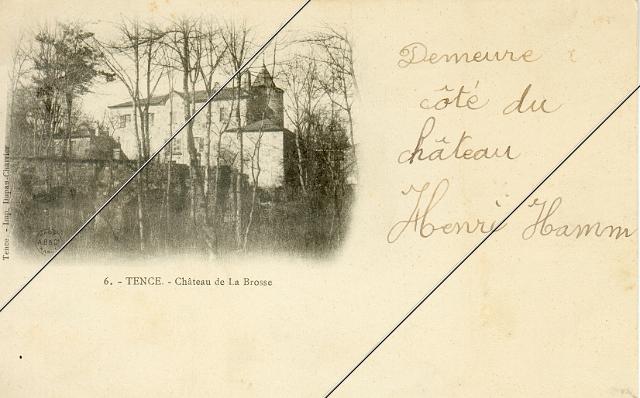 Demeure
côté du
château
Henri Hamm
Tence. - Imp. Dupau-Charrier
6. - TENCE. - Château de La Brosse